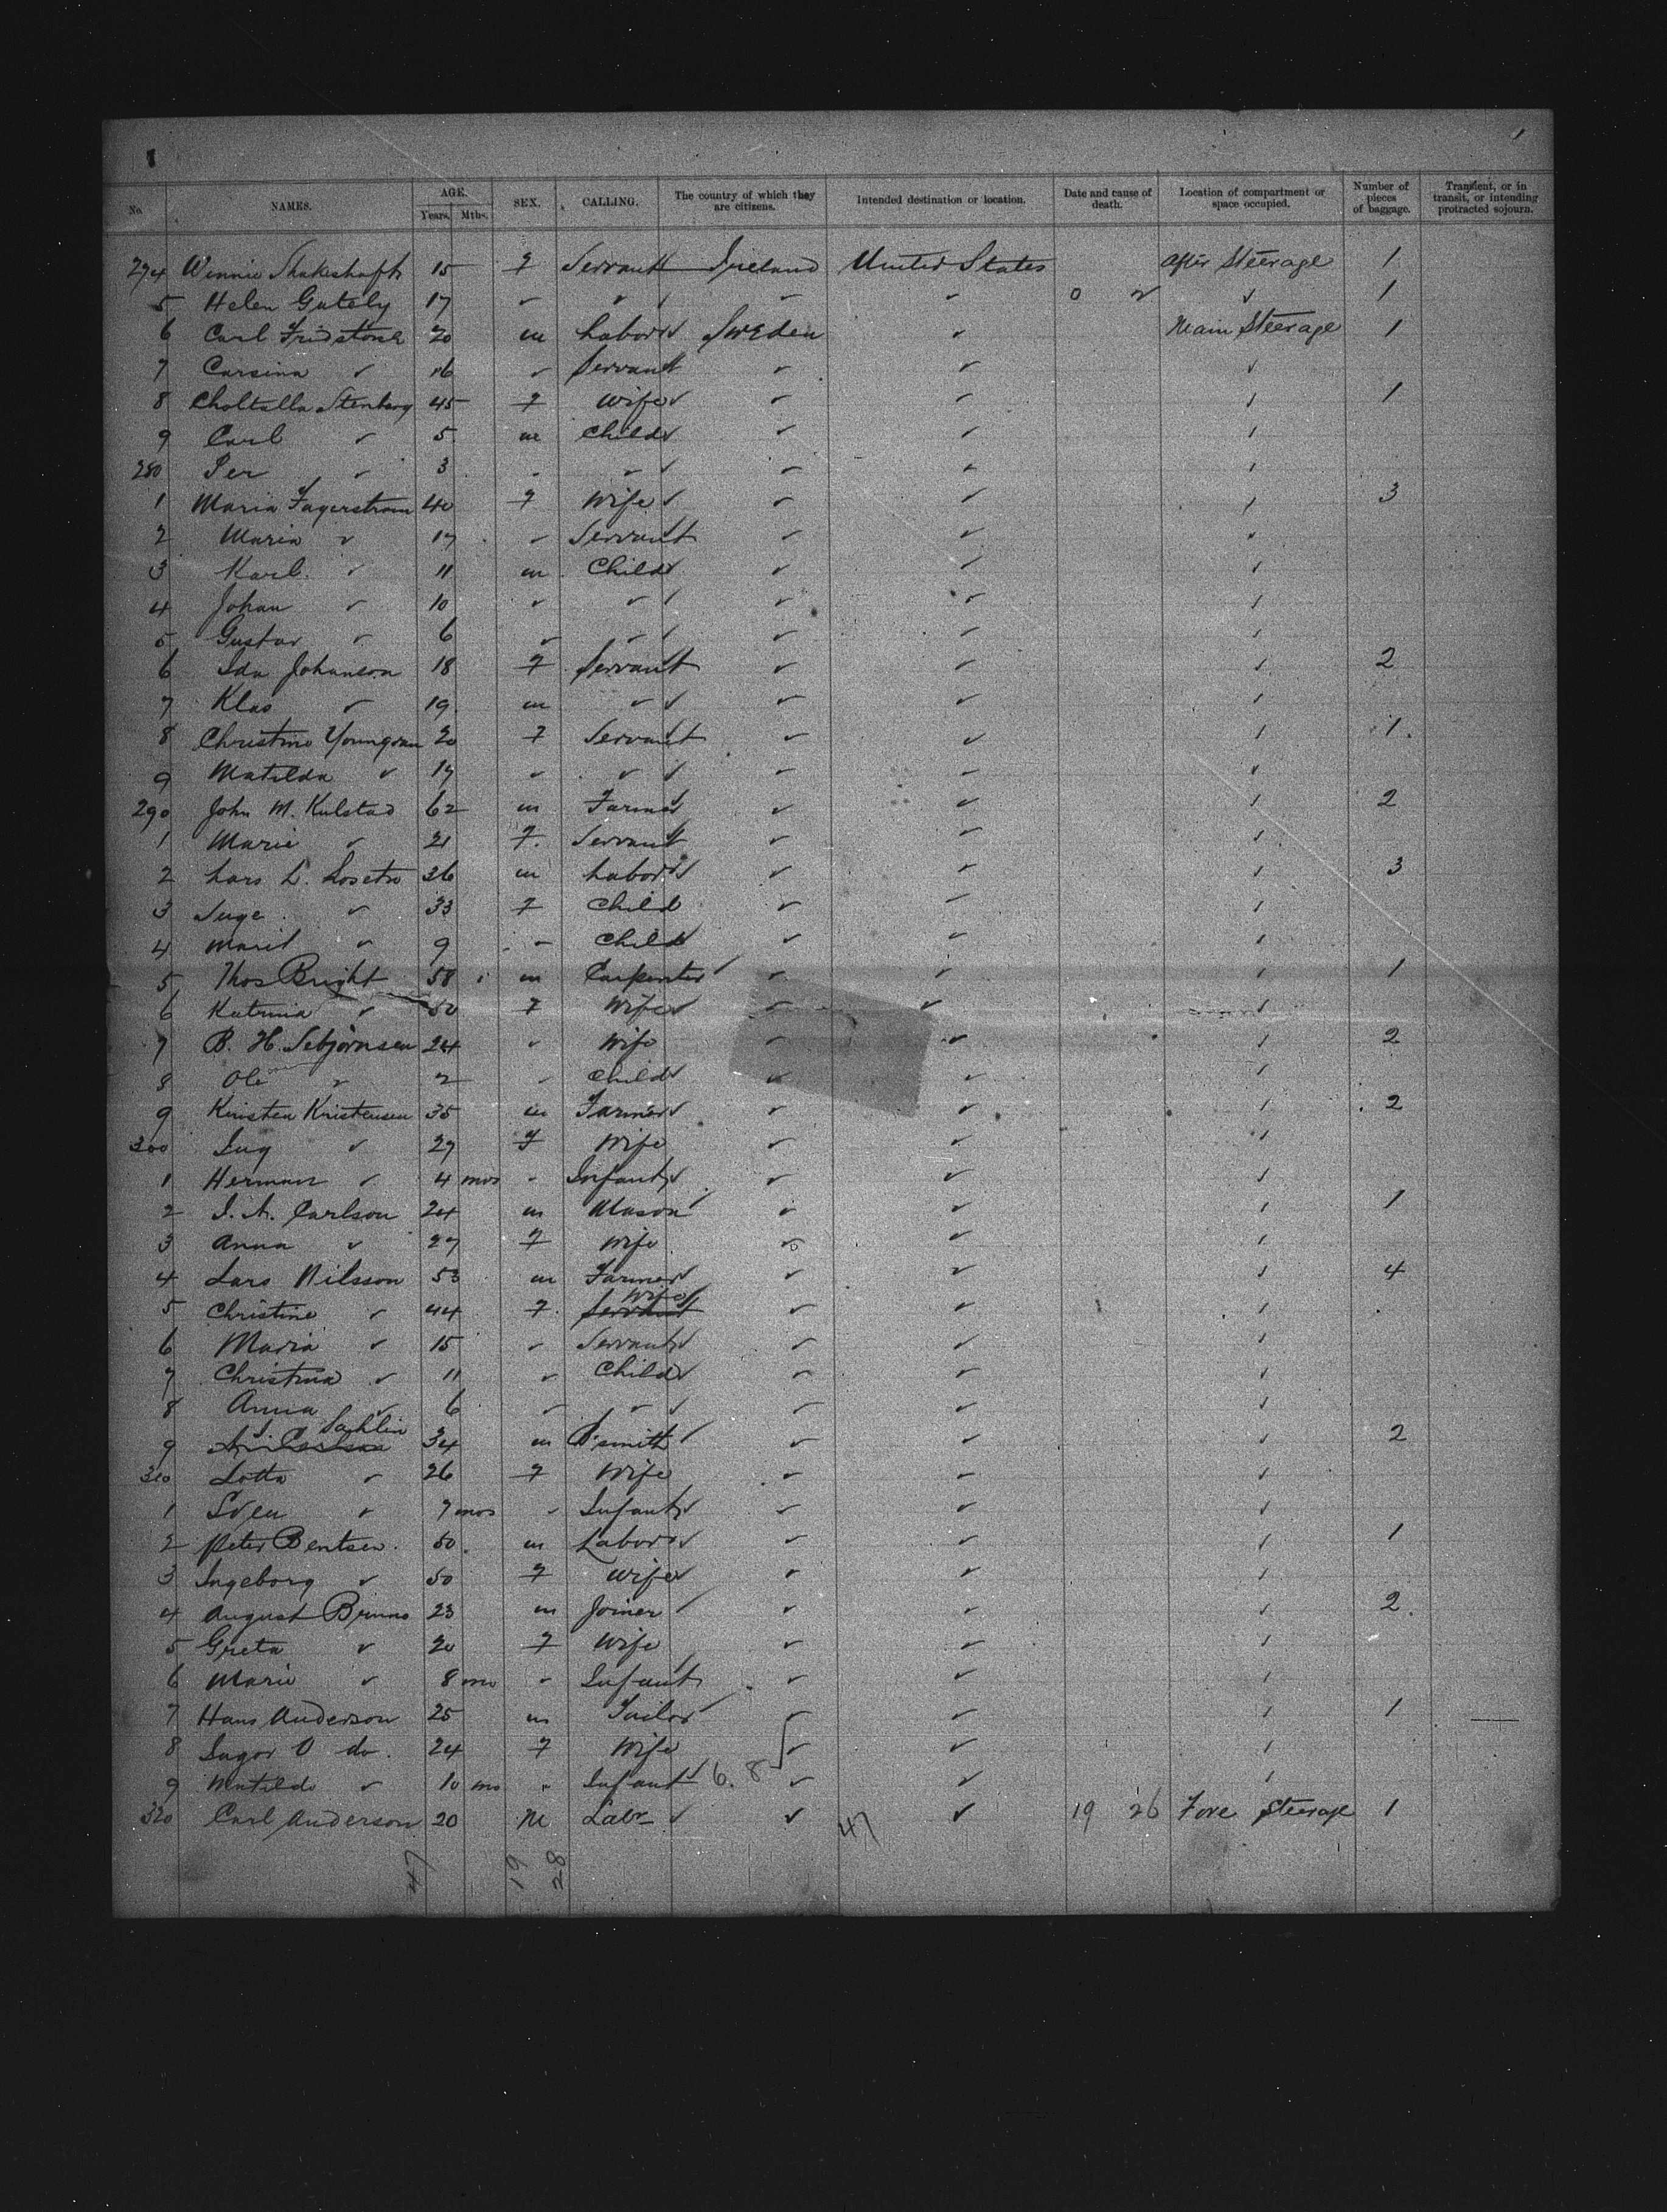 No. NAMES. AGE. Years. Mths. SEX. CALLING. The country of which they are citizens. Intended destination or location. Date and cause of death. Location of compartment or space occupied. Number of pieces of baggage. Transient, or in transit, or intending protracted sojourn.
274 Winnie Shakeshaft 15 F Servant Ireland United States After Steerage 1
5 Helen Gately 17 ✓ ✓ ✓ ✓ 0 2 ✓ 1
6 Carl 20 m Labor ✓ Sweden ✓ Main Steerage 1
7 Carsina ✓ 16 ✓ Servant ✓ ✓ ✓
8 Stenberg 45 F Wife ✓ ✓ ✓ ✓ 1
9 Carl ✓ 5 m Child ✓ ✓ ✓ ✓
280 Per ✓ 3 ✓ ✓ ✓ ✓ ✓ ✓
1 Maria Fagerstrom 40 F Wife ✓ ✓ ✓ ✓ 3
2 Maria ✓ 17 ✓ Servant ✓ ✓ ✓
3 Karl ✓ 11 m Child ✓ ✓ ✓ ✓
4 Johan ✓ 10 ✓ ✓ ✓ ✓ ✓ ✓
5 Gustav ✓ 6 ✓ ✓ ✓ ✓ ✓ ✓
6 Ida Johanson 18 F Servant ✓ ✓ ✓ 2
7 Klas ✓ 19 m ✓ ✓ ✓ ✓ ✓
8 Christine 20 F Servant ✓ ✓ ✓ 1
9 Matilda ✓ 17 ✓ ✓ ✓ ✓ ✓ ✓
290 John M. Kulstad 62 m Farmer ✓ ✓ ✓ 2
1 Marie ✓ 21 F. Servant ✓ ✓ ✓
2 Lars L. 36 m Labor ✓ ✓ ✓ ✓ 3
3 ✓ 33 F Child ✓ ✓ ✓
4 Marit ✓ 9 ✓ Child ✓ ✓ ✓
5 Thos Bright 58 m Carpenter ✓ ✓ ✓ ✓ 1
6 Katrina ✓ 50 F Wife ✓ ✓ ✓ ✓
7 B. H. Sebjornsen 24 ✓ Wife ✓ ✓ ✓ 2
8 Ole ✓ 2 ✓ Child ✓ ✓ ✓ ✓
9 Kristen Kristensen 35 m Farmer ✓ ✓ ✓ ✓ 2
300 Ing ✓ 27 F Wife ✓ ✓ ✓
1 Herman ✓ 4 mos ✓ Infant ✓ ✓ ✓ ✓
2 Carlson 24 m Mason ✓ ✓ ✓ ✓ 1
3 Anna ✓ 27 F Wife ✓ ✓ ✓
4 Lars Nilsson 53 m Farmer ✓ ✓ ✓ ✓ 4
5 Christine ✓ 44 F. Servant Wife ✓ ✓ ✓ ✓
6 Maria ✓ 15 ✓ Servant ✓ ✓ ✓ ✓
7 Christina ✓ 11 ✓ Child ✓ ✓ ✓ ✓
8 Anna ✓ 6 ✓ ✓ ✓ ✓ ✓ ✓
9 Sahlin 34 m B'smith ✓ ✓ ✓ ✓ 2
310 Lotta ✓ 26 F Wife ✓ ✓ ✓
1 Sven ✓ 7 mos ✓ Infant ✓ ✓ ✓ ✓
2 Peter Bentsen 50 m Labor ✓ ✓ ✓ ✓ 1
3 Ingeborg ✓ 50 F Wife ✓ ✓ ✓ ✓
4 August Bruno 23 m Joiner ✓ ✓ ✓ ✓ 2
5 Greta ✓ 20 F Wife ✓ ✓ ✓
6 Marie ✓ 8 mo ✓ Infant ✓ ✓ ✓
7 Hans Anderson 25 m Tailor ✓ ✓ ✓ ✓ 1
8 O do. 24 F Wife ✓ ✓ ✓
9 Matilda ✓ 10 mo " Infant ✓ 6. 8 ✓ ✓ ✓
320 Carl Anderson 20 M Labr ✓ ✓ ✓ 19 26 Fore Steerage 1
47 19 28 47